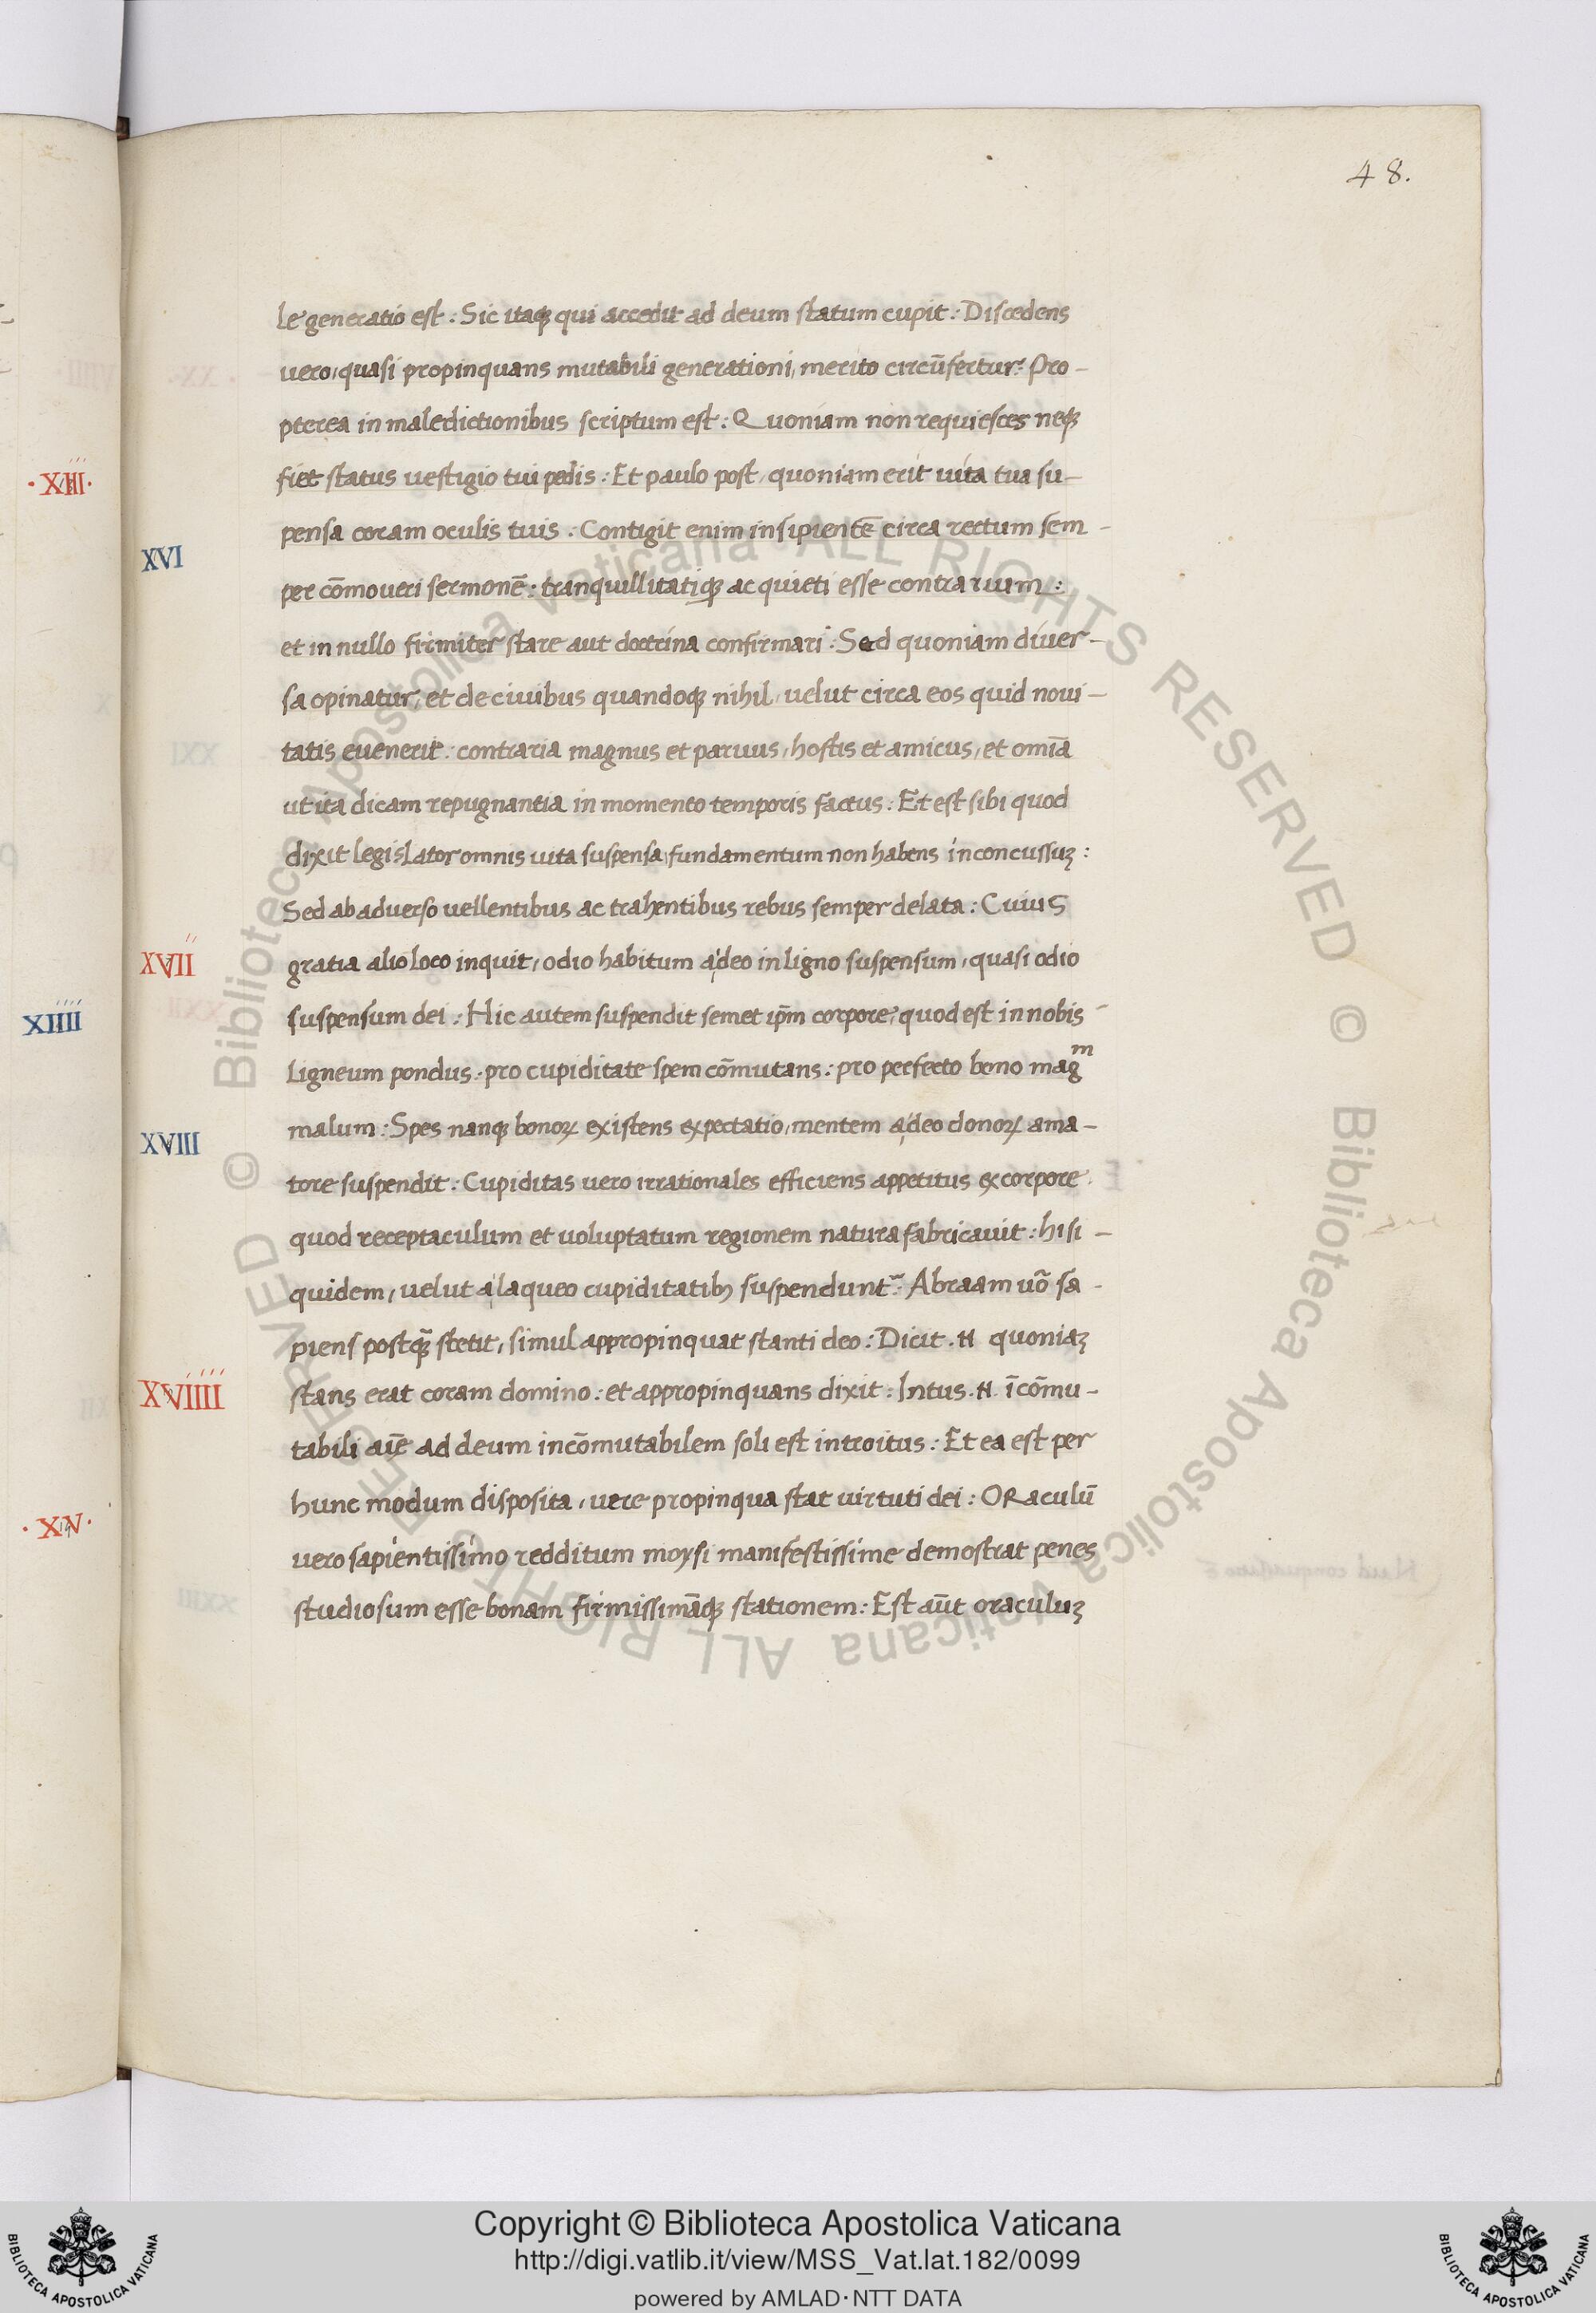 48.
le generatio est : Sic itaq; qui accedit ad deum statum cupit : Discedens
uero, quasi propinquans mutabili generationi, merito circūfertur : Pro-
pterea in maledictionibus scriptum est : Quoniam non requiesces neq;
fiet status uestigio tui pedis : Et paulo post, quoniam erit uita tua su-
pensa coram oculis tuis : Contigit enim insipientē circa rectum sem-
per cōmoueri sermonē : tranquillitatiq; ac quieti esse contrarium :
et in nullo firmiter stare aut doctrina confirmari : Sed quoniam diuer-
sa opinatur, et de ciuibus quandoq; nihil, uelut circa eos quid noui-
tatis euenerit : contraria magnus et paruus, hostis et amicus, et omīa
ut ita dicam repugnantia in momento temporis factus : Et est sibi quod
dixit legislator omnis uita suspensa, fundamentum non habens inconcussuȝ :
Sed ab aduerso uellentibus ac trahentibus rebus semper delata : Cuius
gratia alio loco inquit, odio habitum a deo in ligno suspensum, quasi odio
suspensum dei : Hic autem suspendit semet ip̄m corpore, quod est in nobis
ligneum pondus : pro cupiditate spem cōmutans : pro perfecto bono magᵐ
malum : Spes nanq; bonoꝝ existens expectatio, mentem a deo donoꝝ ama-
tore suspendit : Cupiditas uero irrationales efficiens appetitus ex corpore
quod receptaculum et uoluptatum regionem natura fabricauit : hi si-
quidem, uelut a laqueo cupiditatibꝫ suspendunt᷑ : Abraam uō sa-
piens postq̄; stetit, simul appropinquat stanti deo : Dicit .N. quoniaȝ
stans erat coram domino : et appropinquans dixit : Intus .N. īcōmu-
tabili aīe ad deum incōmutabilem soli est introitus : Et ea est per
hunc modum disposita, uere propinqua stat uirtuti dei : ORaculū
uero sapientissimo redditum moysi manifestissime demostrat penes
studiosum esse bonam firmissimāq; stationem : Est aūt oraculuȝ
XVI
XVII
XVIII
XVIIII
·XIII·
XIIII
·XV·
© Biblioteca Apostolica Vaticana ALL RIGHTS RESERVED © Biblioteca Apostolica Vaticana ALL RIGHTS RESERVED
Copyright © Biblioteca Apostolica Vaticana
http://digi.vatlib.it/view/MSS_Vat.lat.182/0099
powered by AMLAD·NTT DATA
BIBLIOTECA APOSTOLICA VATICANA
BIBLIOTECA APOSTOLICA VATICANA